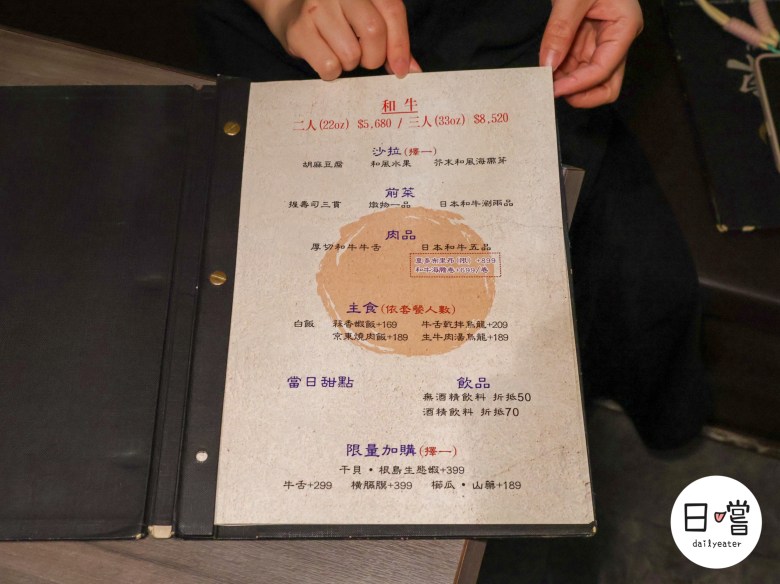 和牛
二人(22oz) $5,680 / 三人(33oz) $8,520
沙拉(擇一)
胡麻豆腐 和風水果 芥末和風海藻芽
前菜
握壽司三貫 燉物一品 日本和牛涮兩品
肉品
厚切和牛牛舌 日本和牛五品
夏多布里昂(限) +899
和牛海膽卷+699/卷
主食(依套餐人數)
白飯 蒜香蝦飯+169 牛舌乾拌烏龍+209
京東燒肉飯+189 生牛肉湯烏龍+189
當日甜點 飲品
無酒精飲料 折抵50
酒精飲料 折抵70
限量加購(擇一)
干貝·根島生態蝦+399
牛舌+299 橫膈膜+399 櫛瓜·山藥+189
日嚐
dailyeater